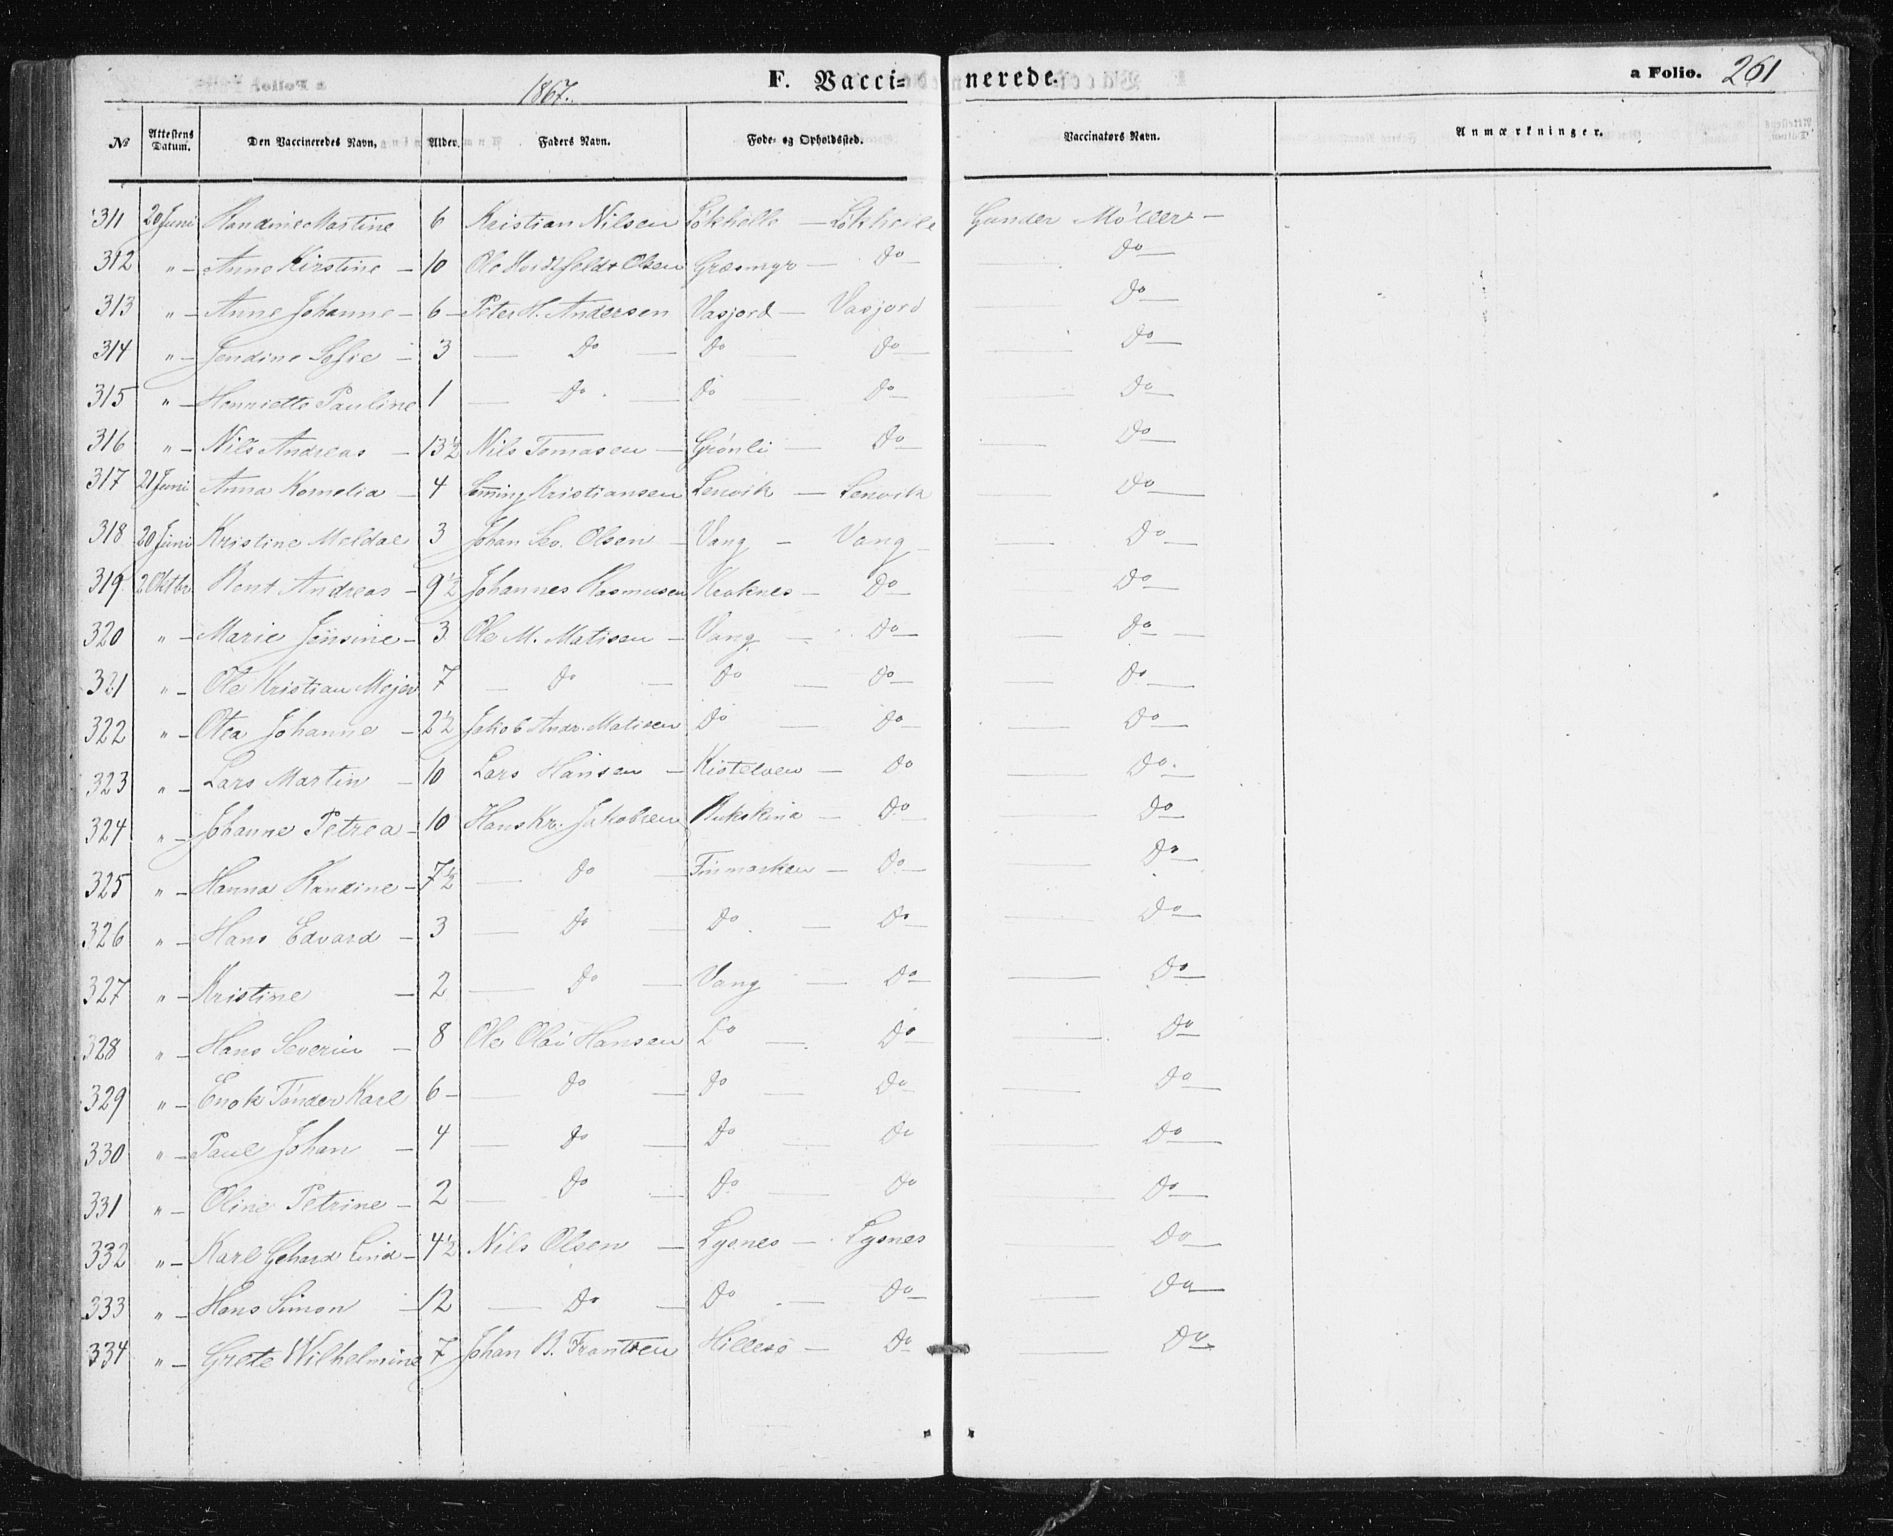 1867.
F. Vaccinerede.
a Folio. 261
№ Attestens Datum. Den Vaccineredes Navn, Alder. Faders Navn. Føde- og Opholdssted. Vaccinators Navn. Anmærkninger.
311 20 Juni Handine Martine 6 Kristian Nilsen Løkhelle — Løkhelle Gunder Møller —
312 " — Anne Kirstine — 10 Ole Olsen Græsmyr — Do — Do —
313 " — Anne Johanne — 6 — Peter H. Andersen Vasjord — Vasjord — Do —
314 " — Jendine Sofie — 3 — Do — Do — Do — Do —
315 " — Henriette Pauline 1 — Do — Do — Do — Do —
316 " — Nils Andreas — 13½ Nils Tomasen — Grønli — Do — Do —
317 21 Juni Anna Kornelia — 4 Kristiansen Lenvik — Lenvik — Do —
318 20 Juni Kristine Meldal 3 Johan Sev. Olsen — Vang — Vang — Do —
319 2 Oktbr Bent Andreas — 9½ Johannes Rasmusen Kroknes — Do — Do —
320 " — Marie Jensine — 3 Ole M. Matisen — Vang — Do — Do —
321 " — Ole Kristian Mejer 7 — Do — Do — Do — Do —
322 " — Otea Johanne — 2½ Jakob Andr. Matisen Do — Do — Do —
323 " — Lars Martin — 10 Lars Hansen — Kistelven — Do — Do —
324 " — Johanne Petrea — 10 Hans Kr. Jakobsen Bukskind — Do — Do —
325 " — Hanna Handine — 7½ — Do — Finmarken — Do — Do —
326 " — Hans Edvard — 3 — Do — Do — Do — Do —
327 " — Kristine — 2 — Do — Vang — Do — Do —
328 " — Hans Severin — 8 Ole Olai Hansen Do — Do — Do —
329 " — Enok Tønder Karl 6 — Do — Do — Do — Do —
330 " — Paul Johan — 4 — Do — Do — Do — Do —
331 " — Oline Petrine — 2 — Do — Do — Do — Do —
332 " — Karl Gehard Lind — 4½ Nils Olsen — Lysnes — Lysnes — Do —
333 " — Hans Simon — 12 — Do — Do — Do — Do —
334 " — Grete Wilhelmine 7 Johan B. Frantsen Hillesø — Do — Do —